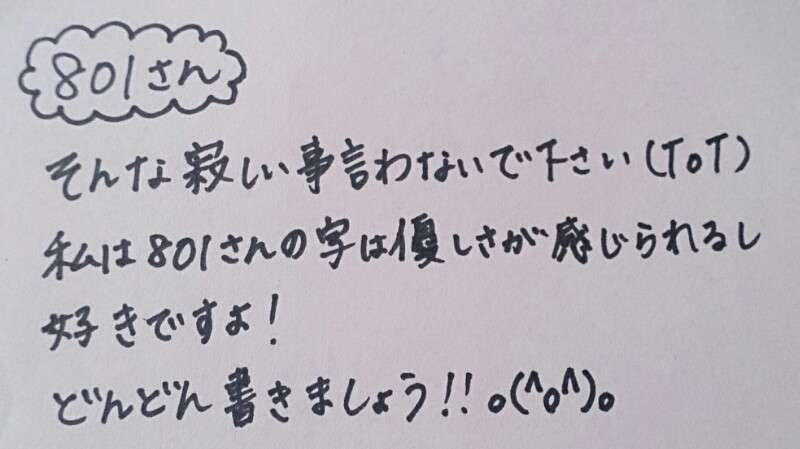 801さん
そんな寂しい事言わないで下さい(ToT)
私は801さんの字は優しさが感じられるし
好きですよ!
どんどん書きましょう!!o(^o^)o